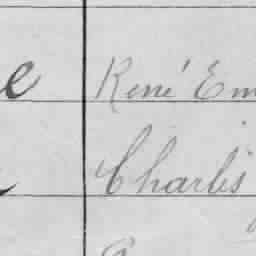 e René Em
Charles